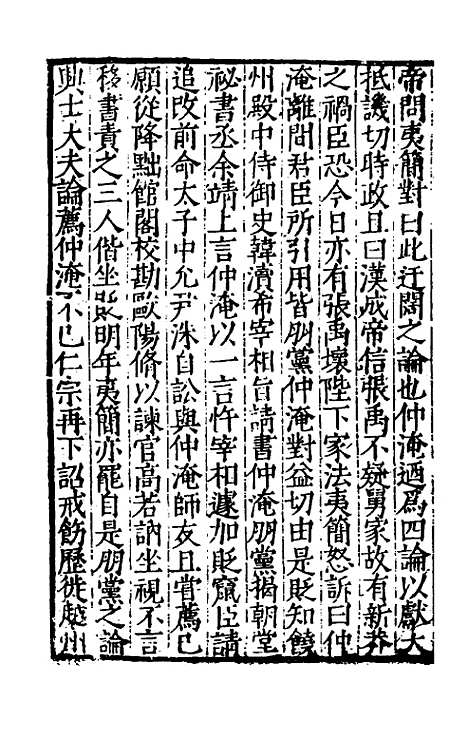 帝問夷簡對曰此迂闊之論也仲淹廼爲四論以獻大
抵譏切時政且曰漢成帝信張禹不疑舅家故有新莽
之禍臣恐今日亦有張禹壞陛下家法夷簡怒訴曰仲
淹離間君臣所引用皆朋黨仲淹對益切由是貶知饒
州殿中侍御史韓瀆希宰相旨請書仲淹朋黨揭朝堂
祕書丞余靖上言仲淹以一言忤宰相遽加貶竄臣請
追改前命太子中允尹洙自訟與仲淹師友且嘗薦已
願從降黜館閣校勘歐陽脩以諫官高若訥坐視不言
移書責之三人偕坐貶明年夷簡亦罷自是朋黨之論
興士大夫論薦仲淹不已仁宗再下詔戒飭歷徙越州